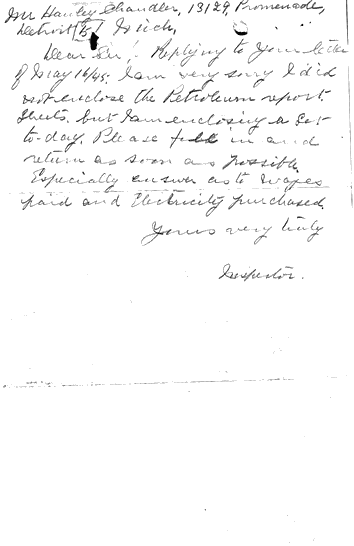 Mr Hanley Chandler, 13129, Promenade,
Detroit (5) Mich,
Dear Sir! Replying to your letter
of May 16/45. I am very sorry I did
not enclose the Petroleum report
sheets, but I am enclosing a set
to-day. Please fill in and
return as soon as possible.
Especially answer as to wages
paid and Electricity purchased.
Yours very truly
Inspector.